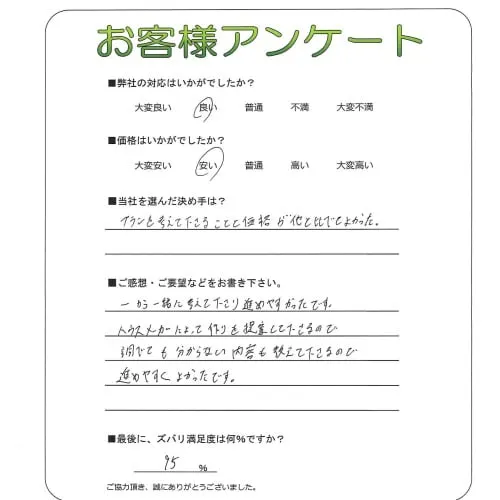 お客様アンケート
■弊社の対応はいかがでしたか？
大変良い 良い 普通 不満 大変不満
■価格はいかがでしたか？
大変安い 安い 普通 高い 大変高い
■当社を選んだ決め手は？
プランを考えて下さることと価格が他と比べてよかった。
■ご感想・ご要望などをお書き下さい。
一から一緒に考えて下さり進めやすかったです。
ハウスメーカーによって作りを提案して下さるので
調べても分からない内容も教えて下さるので
進めやすくよかったです。
■最後に、ズバリ満足度は何%ですか？
95 %
ご協力頂き、誠にありがとうございました。